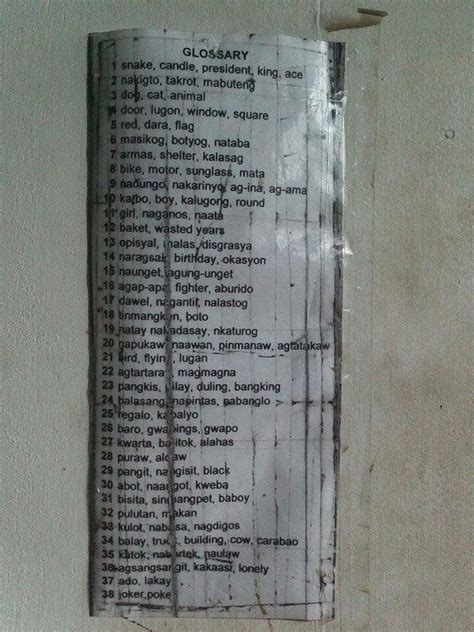 GLOSSARY
1 snake, candle, president, king, ace
2 nakigto, takrot, mabuteng
3 dog, cat, animal
4 door, lugon, window, square
5 red, dara, flag
6 masikog, botyog, nataba
7 armas, shelter, kalasag
8 bike, motor, sunglass, mata
9 nadungo, nakarinyo, ag-ina, ag-ama
10 karbo, boy, kalugong, round
11 girl, naganos, naata
12 baket, wasted years
13 opisyal, malas, disgrasya
14 naragsak, birthday, okasyon
15 naunget, agung-unget
16 agap-apa, fighter, aburido
17 dawel, nagantil, nalastog
18 tinmangken, boto
19 natay nakadasay, nkaturog
20 napukaw, naawan, pinmanaw, agtatakaw
21 bird, flying, lugan
22 agtartaray, magmagna
23 pangkis, pilay, duling, bangking
24 balasang, napintas, nabanglo
25 regalo, kabalyo
26 baro, gwapings, gwapo
27 kwarta, balitok, alahas
28 puraw, aldaw
29 pangit, nangisit, black
30 abot, naangot, kweba
31 bisita, sinmangpet, baboy
32 pulutan, makan
33 kulot, nabasa, nagdigos
34 balay, truck, building, cow, carabao
35 katok, nabartek, naulaw
36 agsangsangit, kakaasi, lonely
37 ado, lakay
38 joker,poke